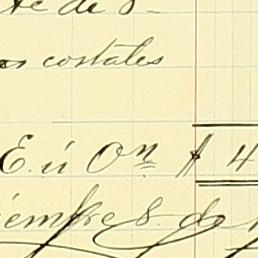 te de 8-
costales
E. ú On $ 4
iembre 8 de